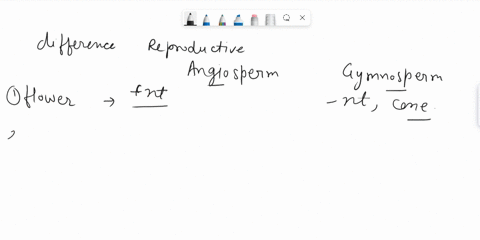 difference Reproductive
Angiosperm Gymnosperm
① flower → +nt -nt, cone
,